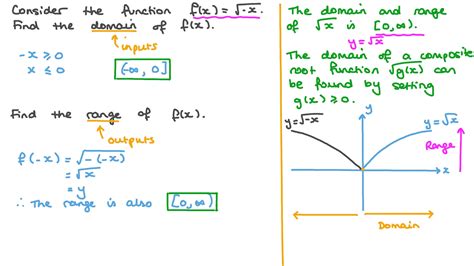 Consider the function f(x) = √-x.
Find the domain of f(x).
inputs
-x ⩾ 0
x ≤ 0
(-∞, 0]
Find the range of f(x).
outputs
f(-x) = √-(-x)
= √x
= y
∴ The range is also [0,∞)
The domain and range
of √x is [0,∞).
y = √x
The domain of a composite
root function √g(x) can
be found by setting
g(x) ⩾ 0.
y
y = √-x
y = √x
Range
x
Domain